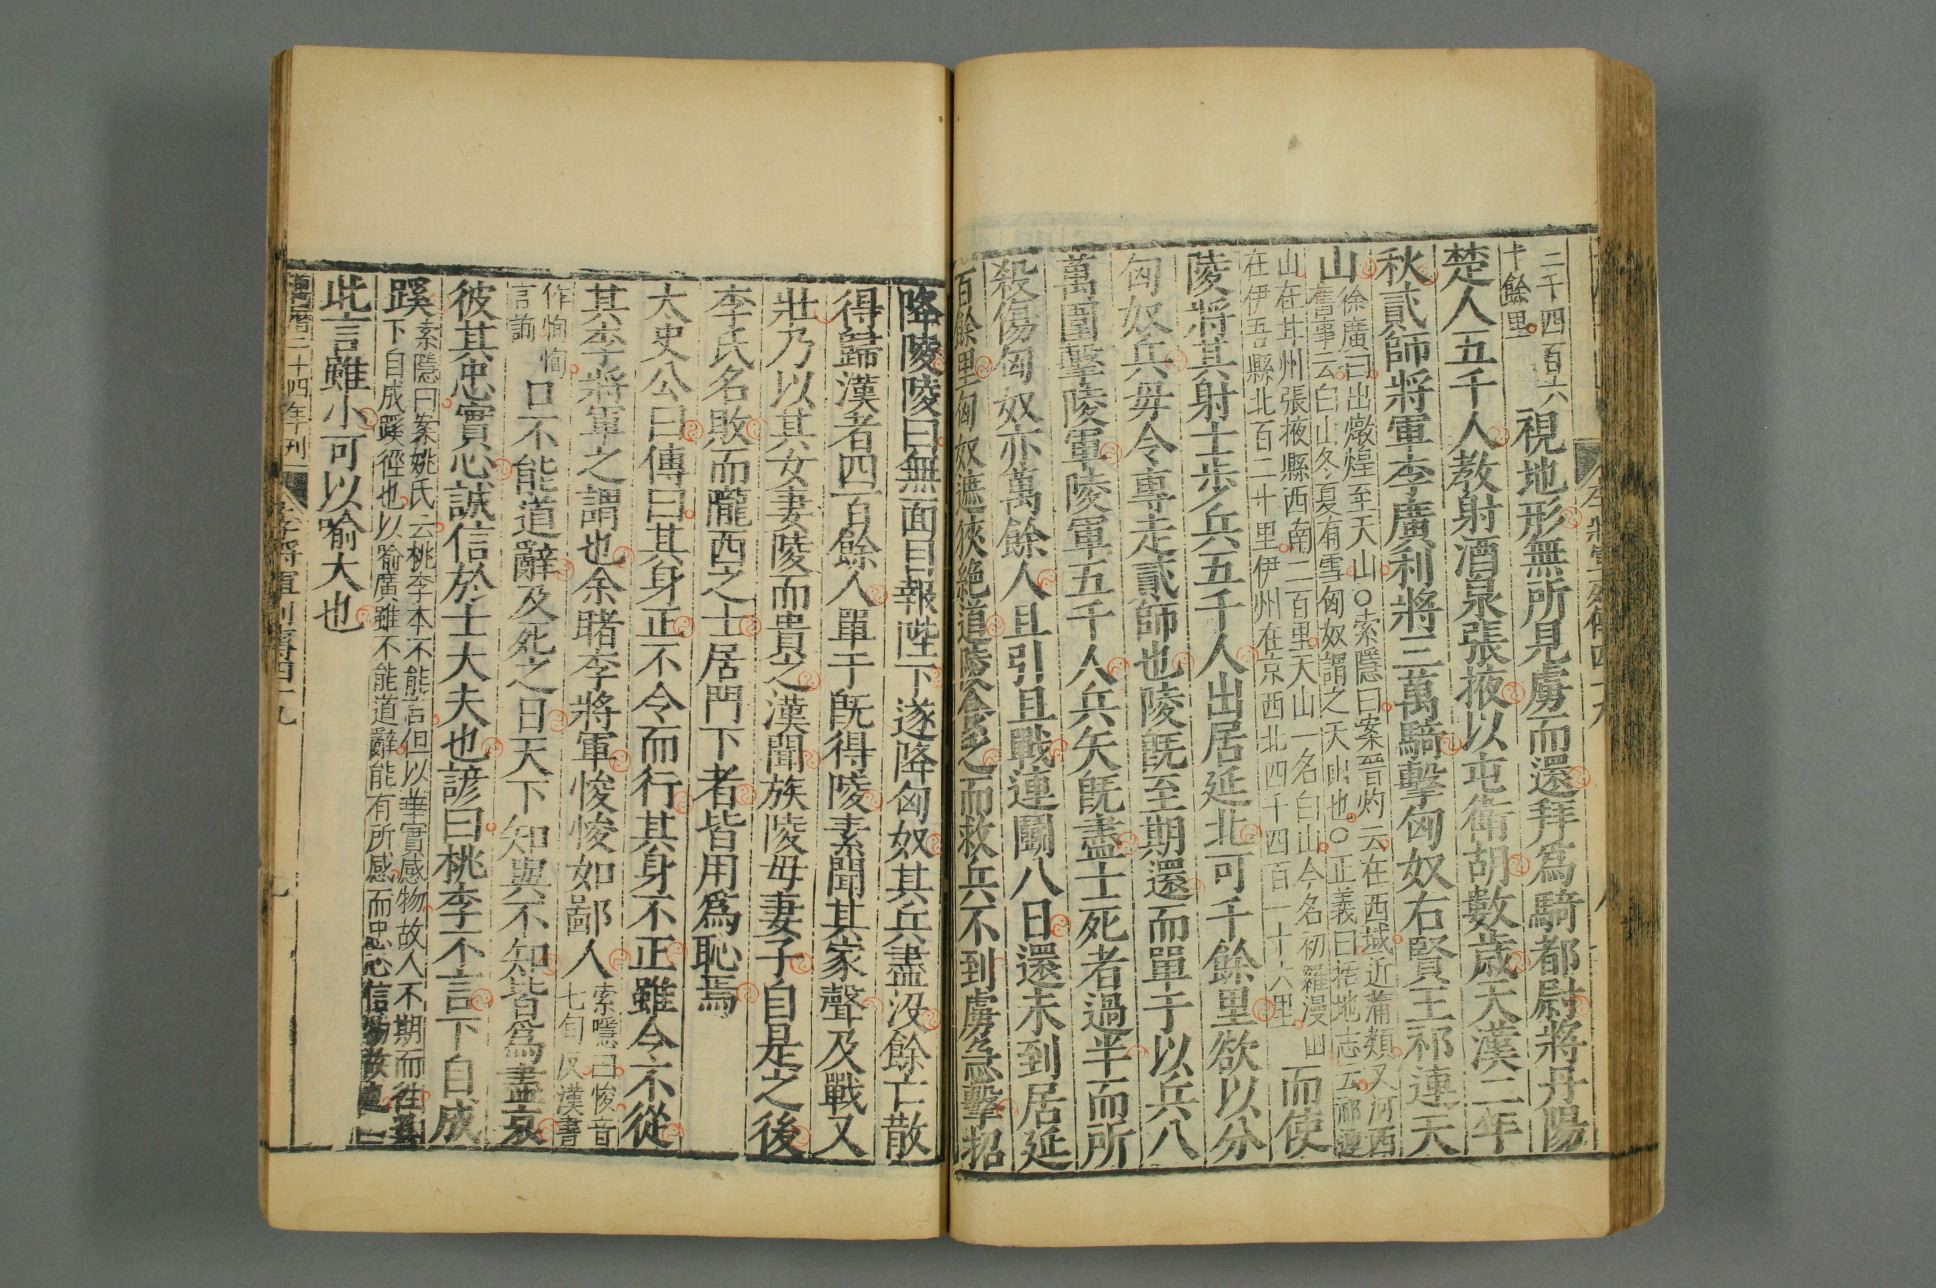 二千四百六十餘里視地形無所見虜而還拜爲騎都尉將丹陽
楚人五千人教射酒泉張掖以屯衛胡數歲天漢二年
秋貳師將軍李廣利將三萬騎擊匈奴右賢王祁連天
山徐廣曰出燉煌至天山○索隱曰案晉灼云在西域近蒲類又河西舊事云白山冬夏有雪匈奴謂之天山也○正義曰括地志云祁連
山在甘州張掖縣西南二百里天山一名白山今名初羅漫山在伊吾縣北百二十里伊州在京西北四千四百一十六里而使
陵將其射士步兵五千人出居延北可千餘里欲以分
匈奴兵毋令專走貳師也陵既至期還而單于以兵八
萬圍擊陵軍陵軍五千人兵矢既盡士死者過半而所
殺傷匈奴亦萬餘人且引且戰連鬭八日還未到居延
百餘里匈奴遮狹絶道陵食乏而救兵不到虜急擊招
降陵陵曰無面目報陛下遂降匈奴其兵盡没餘亡散
得歸漢者四百餘人單于既得陵素聞其家聲及戰又
壯乃以其女妻陵而貴之漢聞族陵母妻子自是之後
李氏名敗而隴西之士居門下者皆用爲恥焉
太史公曰傳曰其身正不令而行其身不正雖令不從
其李將軍之謂也余睹李將軍悛悛如鄙人索隱曰悛音七旬反漢書
作恂恂言詢口不能道辭及死之日天下知與不知皆爲盡哀
彼其忠實心誠信於士大夫也諺曰桃李不言下自成
蹊索隱曰案姚氏云桃李本不能言但以華實感物故人不期而往其下自成蹊徑也以喻廣雖不能道辭能有所感而忠心信物故也
此言雖小可以喻大也
李將軍列傳四十九